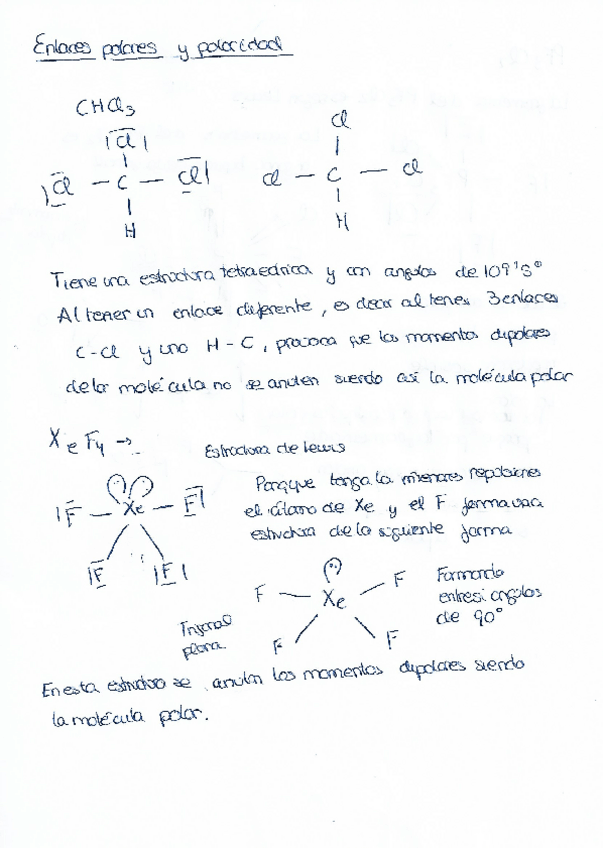 Enlaces polares y polaridad
CHCl3
|Cl|
|Cl - C - Cl|
H
Cl
Cl - C - Cl
H
Tiene una estructura tetraedrica y con angulos de 109'5º
Al tener un enlace diferente, es decir al tener 3 enlaces
C-Cl y uno H-C, provoca que los momentos dipolares
de la molécula no se anulen siendo así la molécula polar
XeF4 →
Estructura de Lewis
|F - Xe - F|
|F |F|
Para que tenga la menores repulsiones
el átomo de Xe y el F forma una
estructura de la siguiente forma
F - Xe - F
F F
Formando
entre si angulos
de 90º
plana
En esta estructura se anulan los momentos dipolares siendo
la molécula polar.